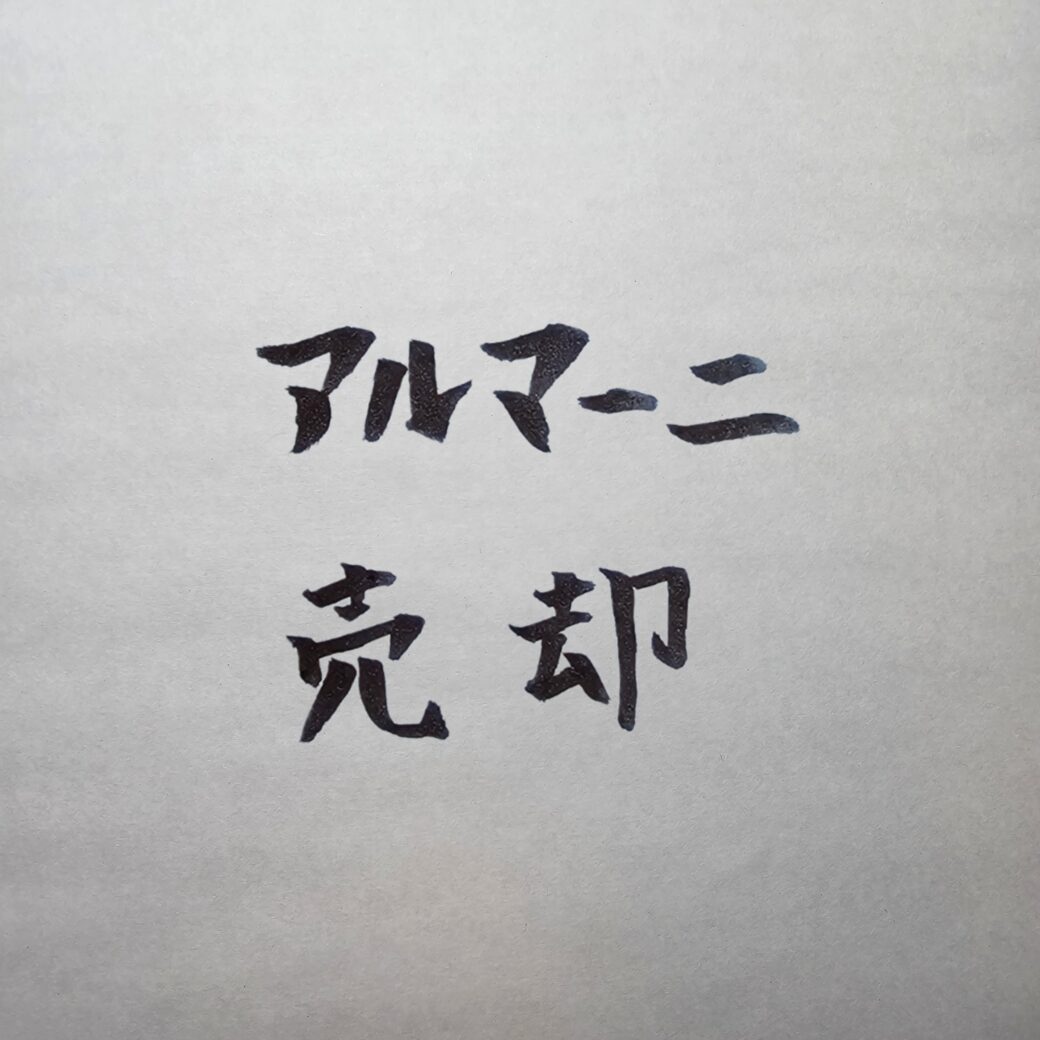 アルマーニ
売却